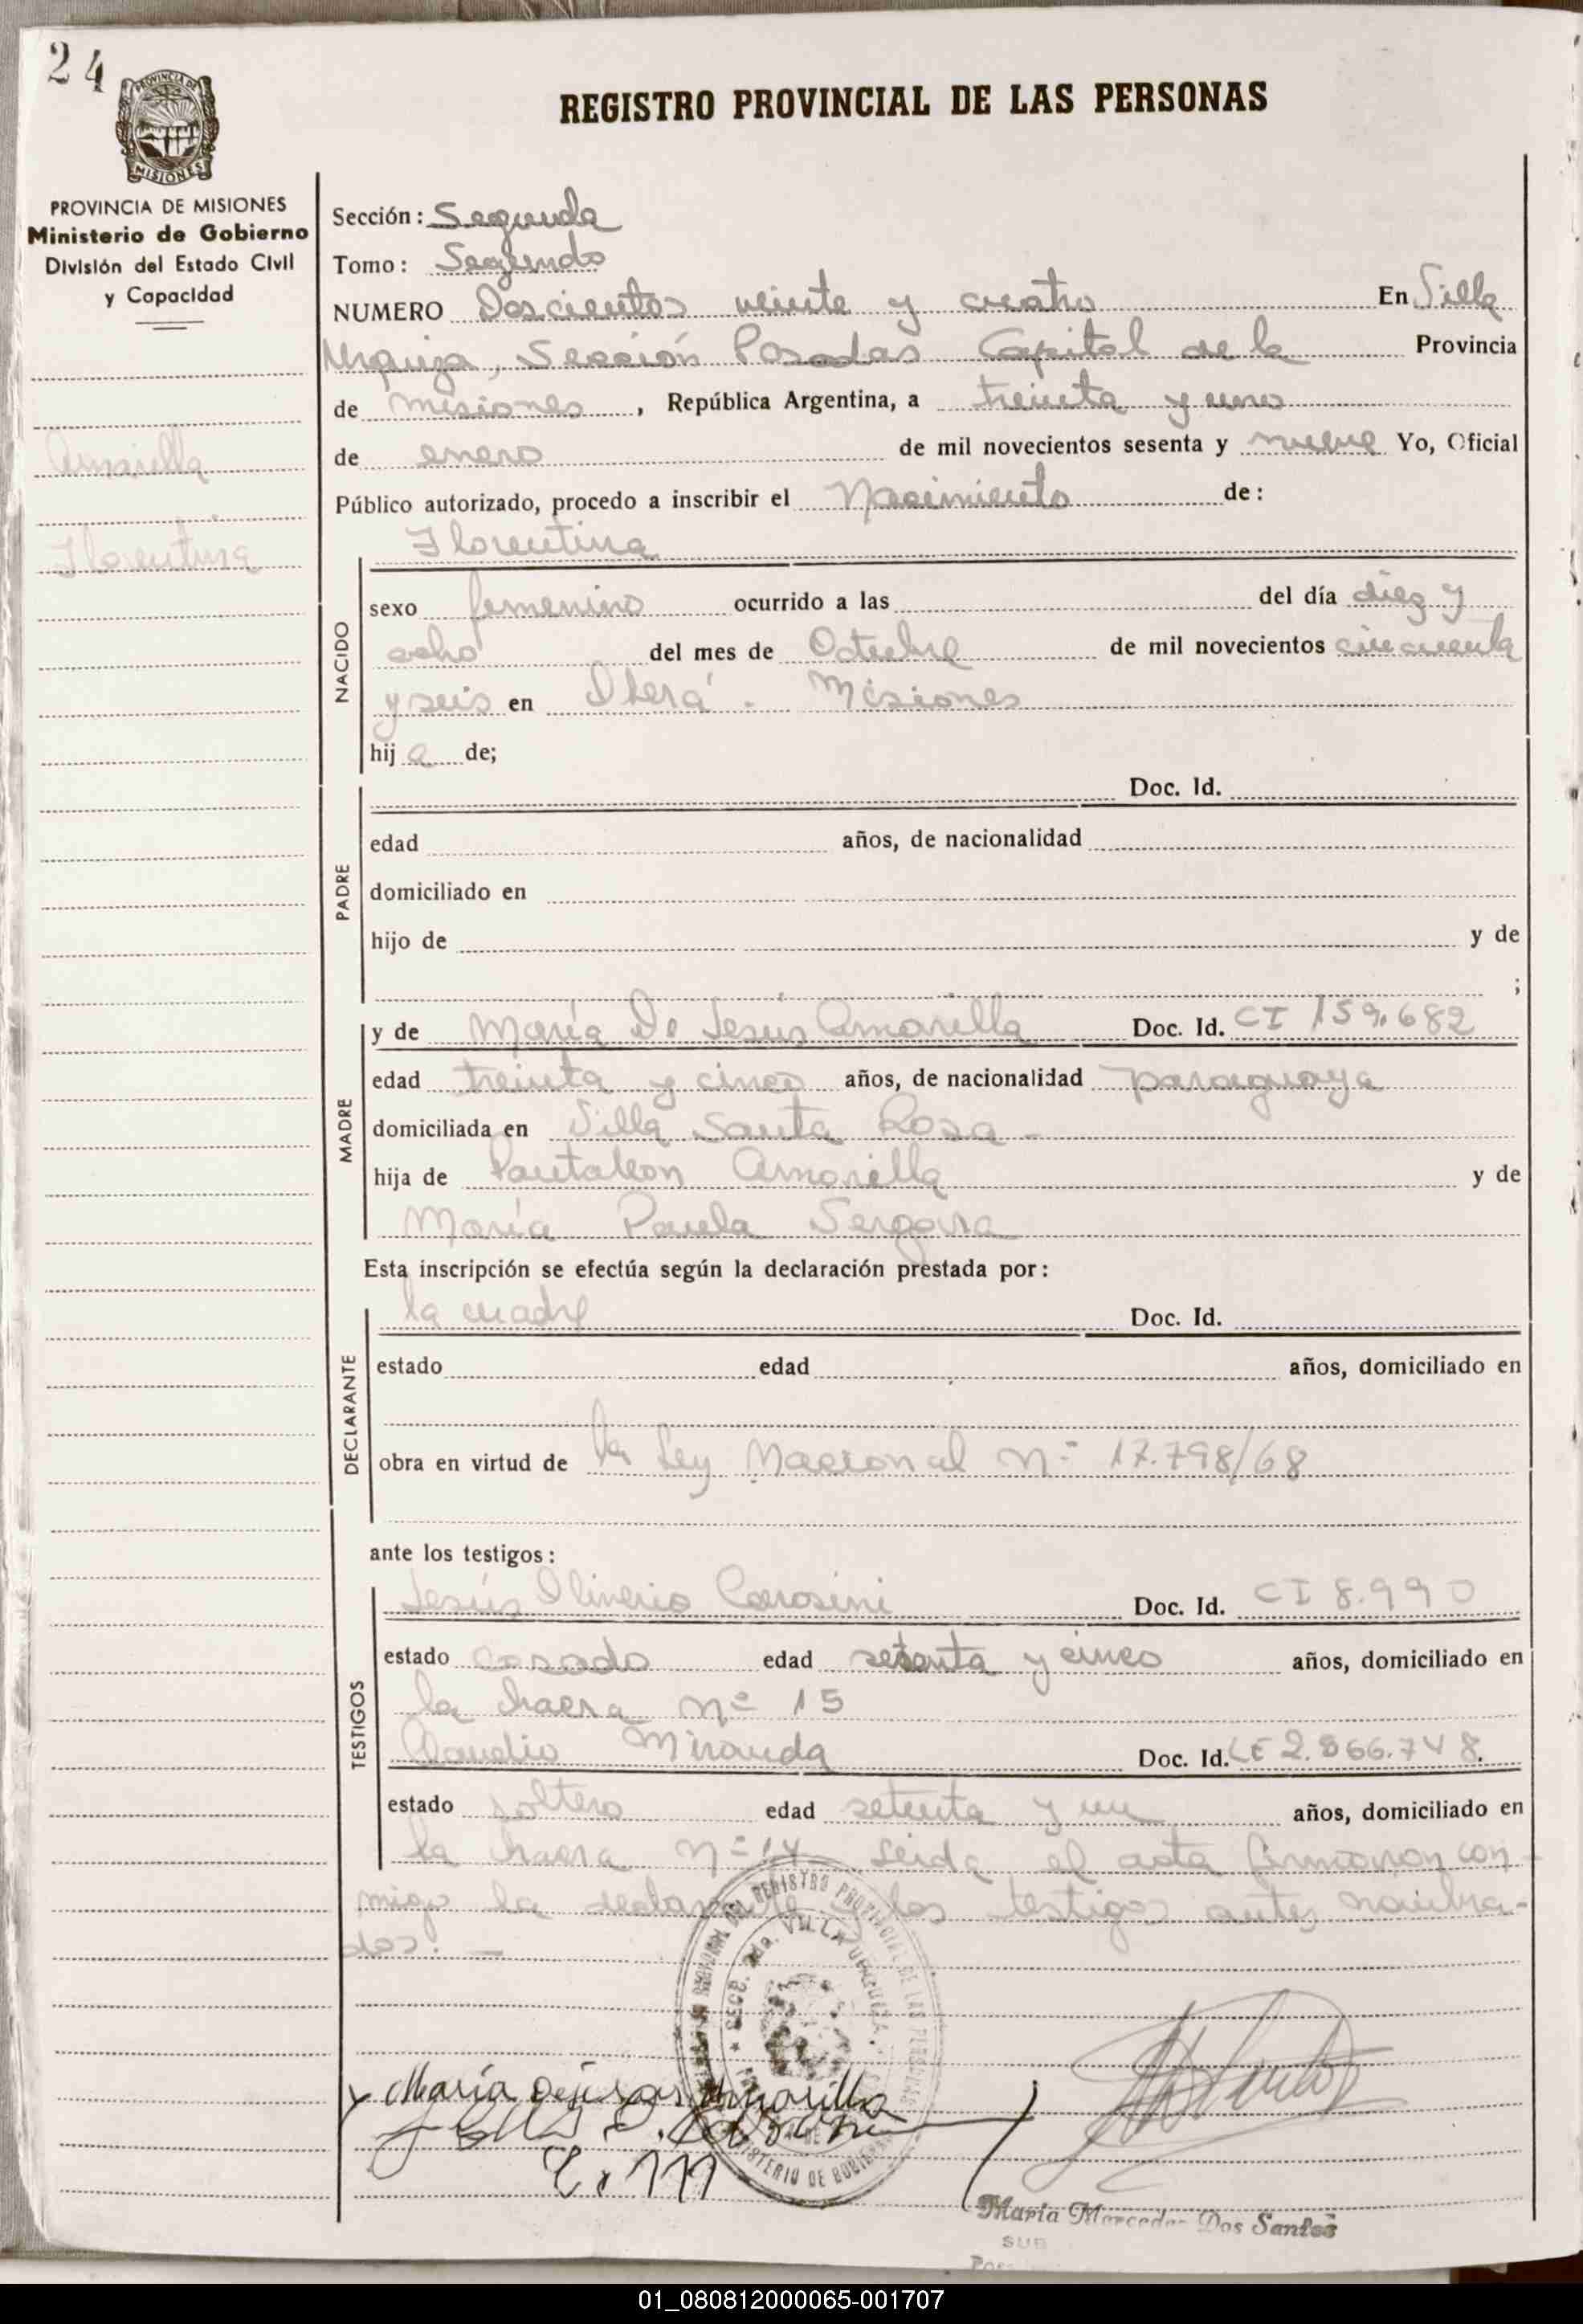 24
REGISTRO PROVINCIAL DE LAS PERSONAS
PROVINCIA DE MISIONES
MISIONES
PROVINCIA DE MISIONES
Ministerio de Gobierno
División del Estado Civil
y Capacidad
Amarilla
Florentina
Sección: Segunda
Tomo: Segundo
NUMERO Doscientos veinte y cuatro En Villa
Urquiza, Sección Posadas Capital de la Provincia
de Misiones, República Argentina, a treinta y uno
de enero de mil novecientos sesenta y nueve Yo, Oficial
Público autorizado, procedo a inscribir el Nacimiento de:
Florentina
NACIDO
sexo femenino ocurrido a las del día diez y
ocho del mes de Octubre de mil novecientos cincuenta
y seis en Oberá. Misiones
hij a de;
PADRE
Doc. Id.
edad años, de nacionalidad
domiciliado en
hijo de y de
;
MADRE
y de María De Jesús Amarilla Doc. Id. CI 159.682
edad treinta y cinco años, de nacionalidad paraguaya
domiciliada en Villa Santa Rosa -
hija de Pantaleon Amarilla y de
María Paula Vergara
Esta inscripción se efectúa según la declaración prestada por:
DECLARANTE
la madre Doc. Id.
estado edad años, domiciliado en
obra en virtud de la Ley Nacional Nº 17.798/68
ante los testigos:
TESTIGOS
Jesús Oliverio Carosini Doc. Id. CI 8.990
estado casado edad setenta y cinco años, domiciliado en
la chacra Nº 15
Claudio Miranda Doc. Id. LE 2.866.748.
estado soltero edad setenta y un años, domiciliado en
la chacra Nº 14 Leida el acta firmaron con-
migo la declarante y los testigos antes nombra-
dos. -
SECC. 2da. VILLA URQUIZA
REGISTRO PROVINCIAL DE LAS PERSONAS
MINISTERIO DE GOBIERNO
María dejesus Amarilla
C. M
Maria Mercedes Dos Santos
SUB
01_080812000065-001707